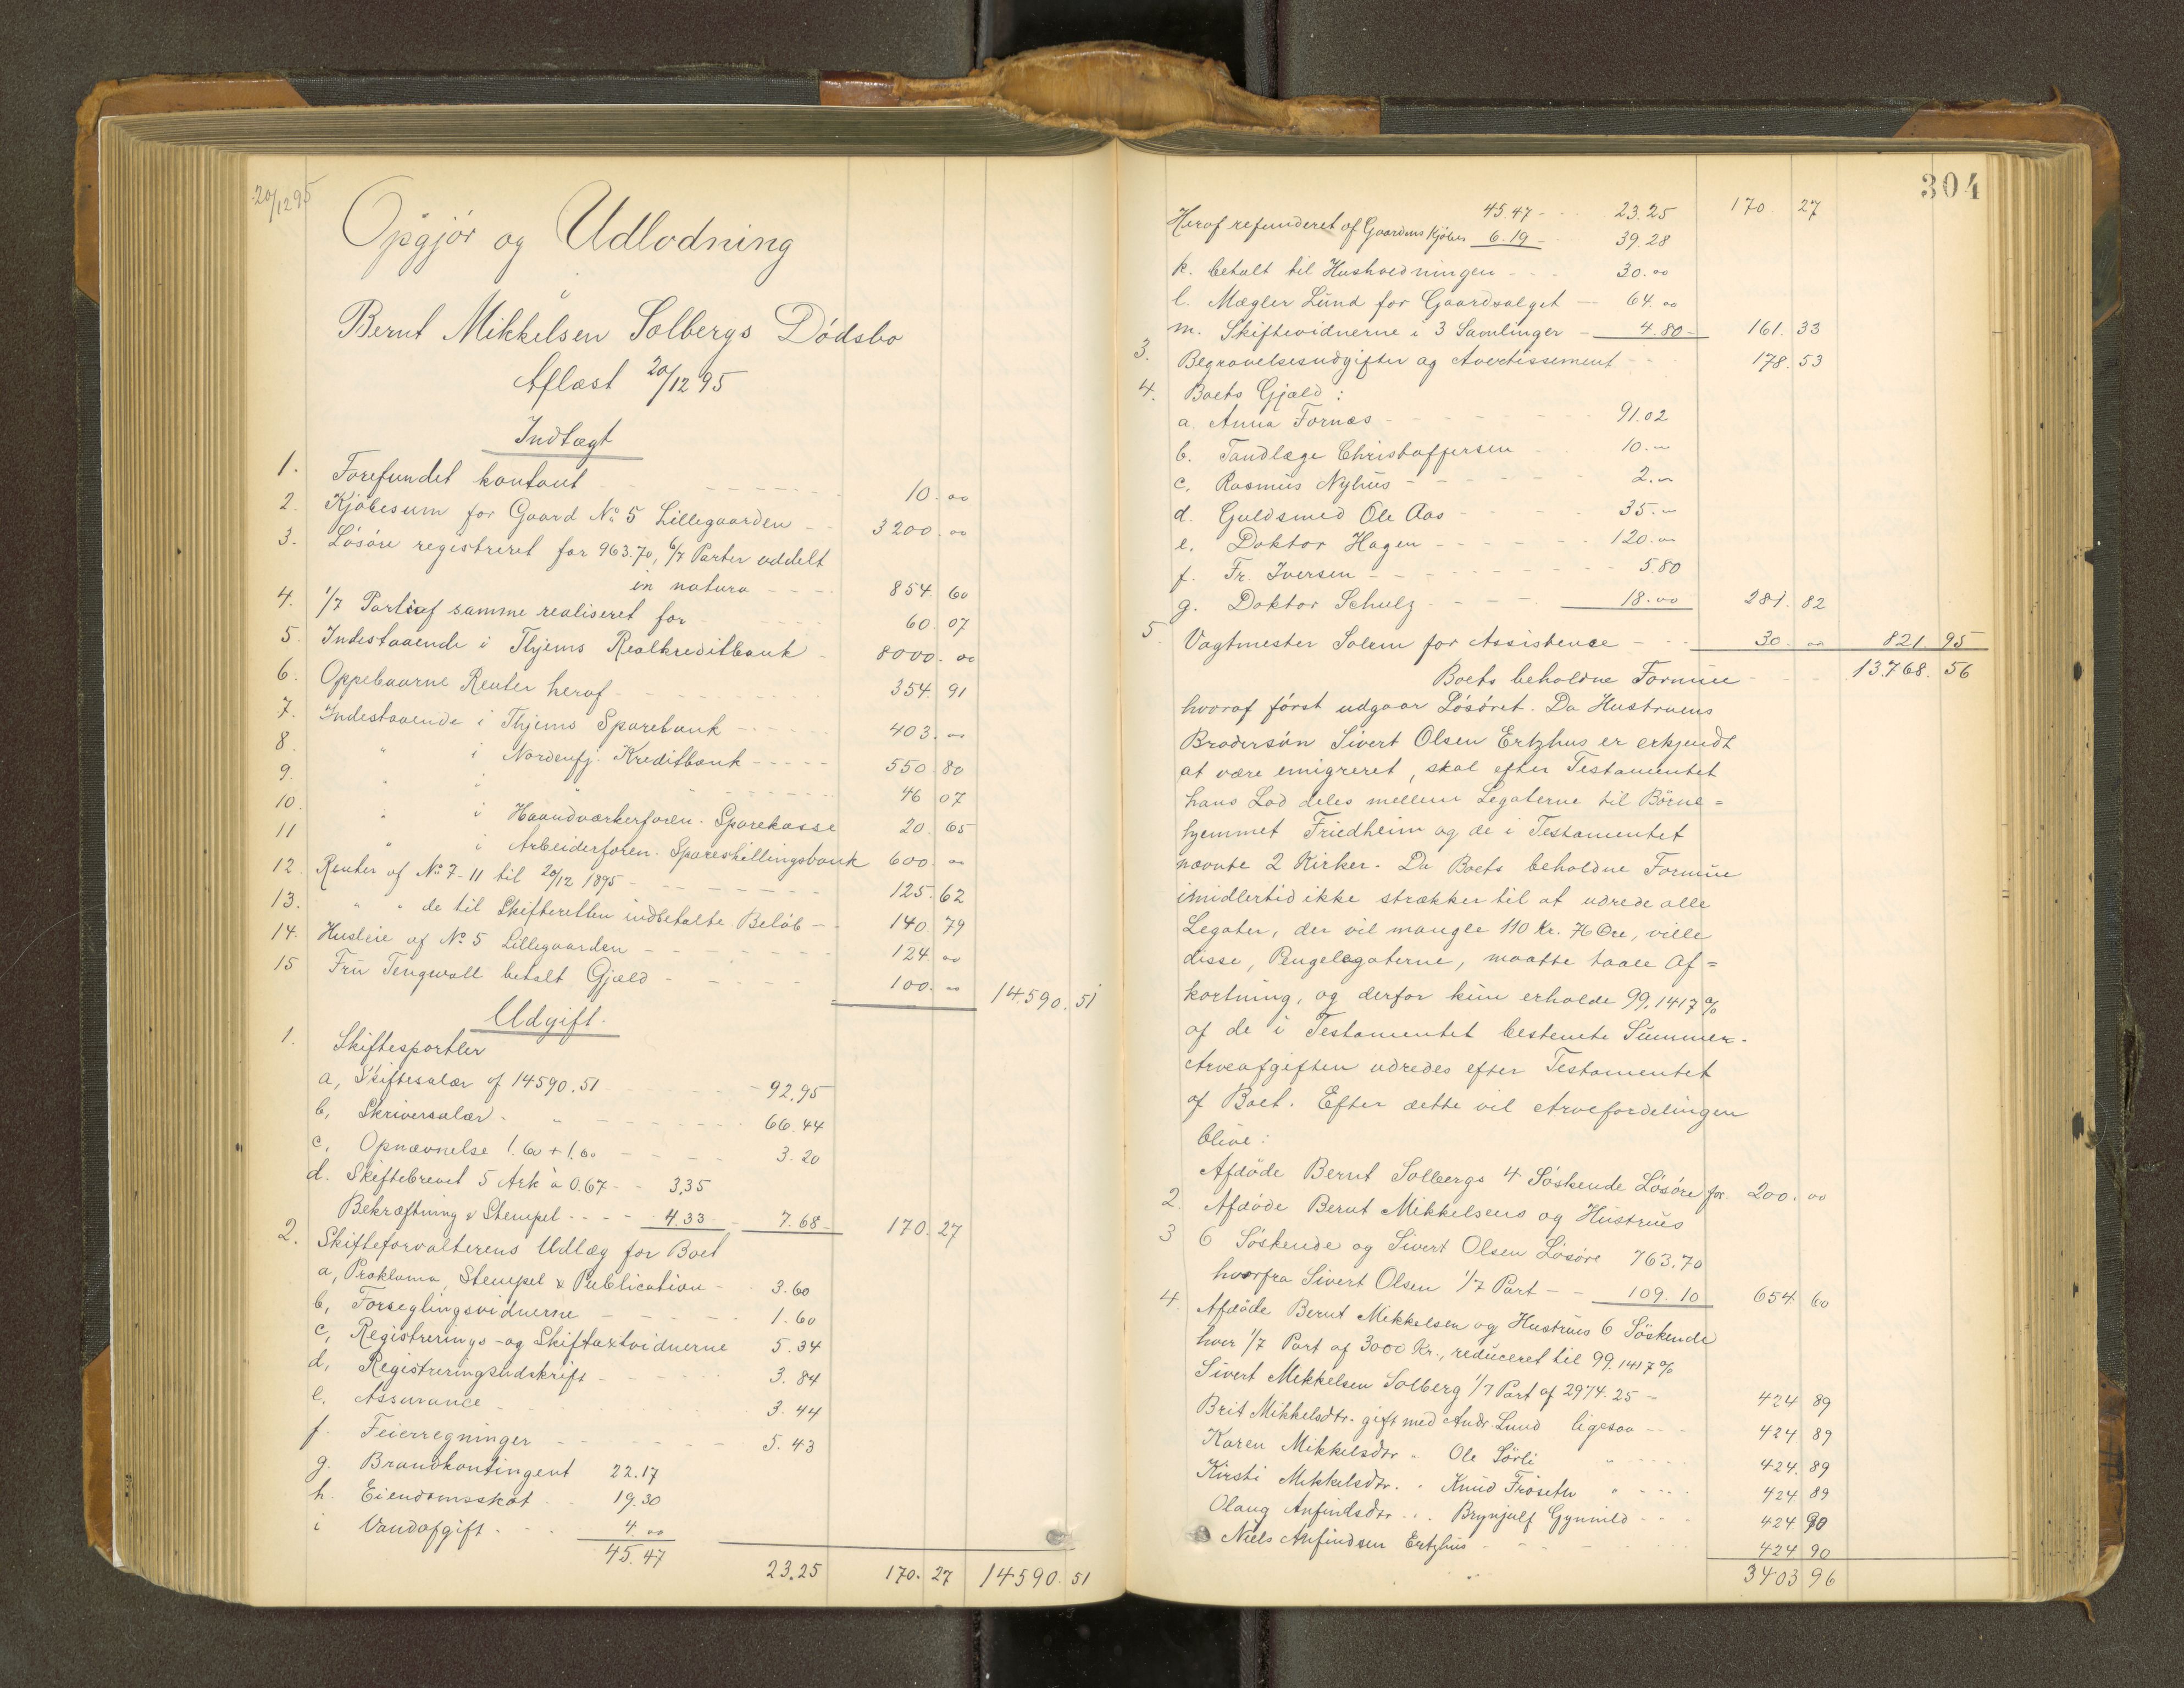 20/12 95
Opgjør og Udlodning
i
Bernt Mikkelsen Solbergs Dødsbo
Aflæst 20/12 95
Indtægt
1. Forefundet kontant - - - 10. 00
2. Kjøbesum for Gaard No 5 Lillegaarden - - 3200. 00
3. Løsøre registreret for 963.70, 6/7 Parter uddelt
in natura - - - 854. 60
4. 1/7 Part af samme realiseret for 60. 07
5. Indestaaende i Thjems Realkreditbank - 8000. 00
6. Oppebaarne Renter heraf - - - 354. 91
7. Indestaaende i Thjems Sparebank - - - 403. 00
8. " i Nordenfj. Kreditbank - - - 550 80
9. " i " " - - - 46 07
10. " i Haandværkerforen. Sparekasse 20. 65
11 " i Arbeiderforen. Spareskillingsbank 600. 00
12. Renter af No 7-11 til 20/12 1895 - - - 125. 62
13. " " de til Skifteretten indbetalte Beløb - - 140. 79
14. Husleie af No 5 Lillegaarden - - - 124. 00
15 Fru Tengwall betalt Gjæld - - - 100. 00 14590. 51
Udgift.
1. Skiftesportler
a, Skiftesalær af 14590.51 - 92.95
b, Skriversalær - " - - - 66.44
c, Opnævnelse 1.60 + 1.60 - - - 3.20
d. Skiftebrevet 5 Ark à 0.67 - - 3,35
Bekræftning & Stempel - - - 4.33 - 7.68 - 170. 27
2. Skifteforvalterens Udlæg for Boet
a, Proklama, Stempel & Publication - 3.60
b, Forseglingsvidnerne - - - 1.60
c, Registrerings- og Skiftaxtvidnerne 5.34
d, Registreringsudskrift - - - 3.84
e. Assurance - - - 3.44
f. Feierregninger - - - 5.43
g. Brandkontingent 22.17
h. Eiendomsskat - - 19.30
i Vandafgift - - - 4.00
45.47
23.25 170. 27 14590. 51
304
45.47 - - - 23.25 170. 27
Heraf refunderet af Gaardens Kjøber 6.19 - 39.28
k. betalt til Husholdningen - - - 30.00
l. Mægler Lund for Gaardsalget - 64.00
m. Skiftevidnerne i 3 Samlinger - 4.80 - 161. 33
3. Begravelsesudgifter og Avertissement - - 178. 53
4. Boets Gjæld:
a. Anna Fornæs - - - 91.02
b. Tandlæge Christoffersen - 10.-
c, Rasmus Nyhus - - - 2.-
d. Guldsmed Ole Aas - - - 35.-
e. Doktor Hagen - - - 120.-
f. Fr. Iversen - - - 5.80
g. Doktor Schulz - - - 18.00 281. 82
5. Vagtmester Solem for Assistence - - 30. 00 821. 95
Boets beholdne Formue - - - 13768. 56
hvoraf først udgaar Løsøret. Da Hustruens
Brodersøn Sivert Olsen Ertzhus er erkjendt
at være emigreret, skal efter Testamentet
hans Lod deles mellem Legaterne til Børne=
hjemmet Friedheim og de i Testamentet
nævnte 2 Kirker. Da Boets beholdne Formue
imidlertid ikke strækker til at udrede alle
Legater, der vil mangle 110 Kr. 76 Øre, ville
disse, Pengelegaterne, maatte taale Af=
kortning, og derfor kun erholde 99,1417 %
af de i Testamentet bestemte Summer.
Arveafgiften udredes efter Testamentet
af Boet. Efter dette vil Arvefordelingen
blive:
Afdøde Bernt Solbergs 4 Søskende Løsøre for. 200. 00
2. Afdøde Bernt Mikkelsens og Hustrues
3 6 Søskende og Sivert Olsen Løsøre 763.70
hvorfra Sivert Olsen 1/7 Part - - 109.10 654 60
4. Afdøde Bernt Mikkelsen og Hustrues 6 Søskende
hver 1/7 Part af 3000 Kr., reduceret til 99.1417 %
Sivert Mikkelsen Solberg 1/7 Part af 2974.25 - 424 89
Brit Mikkelsdtr. gift med Andr. Lund ligesaa - - 424. 89
Karen Mikkelsdtr " Ole Sørli " - - - 424. 89
Kirsti Mikkelsdtr. " Knud Frøseth " - - - 424 89
Olaug Anfindsdtr. . . Brynjulf Gynnild - - - 424. 90
Niels Anfindsen Ertzhus - - - 424 90
3403 96